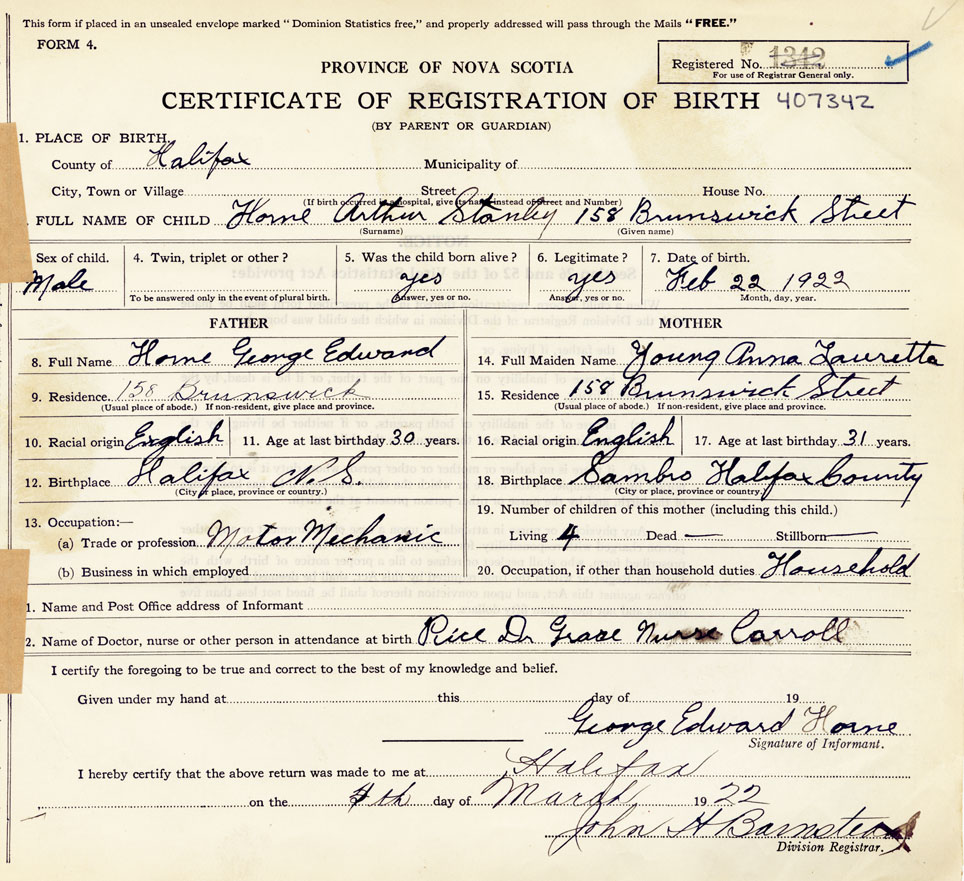 This form if placed in an unsealed envelope marked "Dominion Statistics free," and properly addressed will pass through the Mails "FREE."
FORM 4.
Registered No. 1342
For use of Registrar General only.
PROVINCE OF NOVA SCOTIA
CERTIFICATE OF REGISTRATION OF BIRTH 407342
(BY PARENT OR GUARDIAN)
1. PLACE OF BIRTH,
County of Halifax Municipality of
City, Town or Village Street House No.
(If birth occurred in a hospital, give its name instead of Street and Number)
FULL NAME OF CHILD Horne Arthur Stanley 158 Brunswick Street
(Surname) (Given name)
Sex of child. 4. Twin, triplet or other? 5. Was the child born alive? 6. Legitimate? 7. Date of birth.
Male yes yes Feb 22 1922
To be answered only in the event of plural birth. Answer, yes or no. Answer, yes or no. Month, day, year.
FATHER MOTHER
8. Full Name Horne George Edward 14. Full Maiden Name Young Anna Lauretta
9. Residence. 158 Brunswick 15. Residence 158 Brunswick Street
(Usual place of abode.) If non-resident, give place and province. (Usual place of abode.) If non-resident, give place and province.
10. Racial origin English 11. Age at last birthday 30 years. 16. Racial origin English 17. Age at last birthday 31 years.
12. Birthplace Halifax N.S. 18. Birthplace Sambro Halifax County
(City or place, province or country.) (City or place, province or country.)
13. Occupation:— 19. Number of children of this mother (including this child.)
(a) Trade or profession Motor Mechanic Living 4 Dead — Stillborn —
(b) Business in which employed 20. Occupation, if other than household duties Household
1. Name and Post Office address of Informant
2. Name of Doctor, nurse or other person in attendance at birth Rice Dr Grace Nurse Carroll
I certify the foregoing to be true and correct to the best of my knowledge and belief.
Given under my hand at this day of 19
George Edward Horne
Signature of Informant.
I hereby certify that the above return was made to me at Halifax
on the 4th day of March 1922
John H Barnstead
Division Registrar.